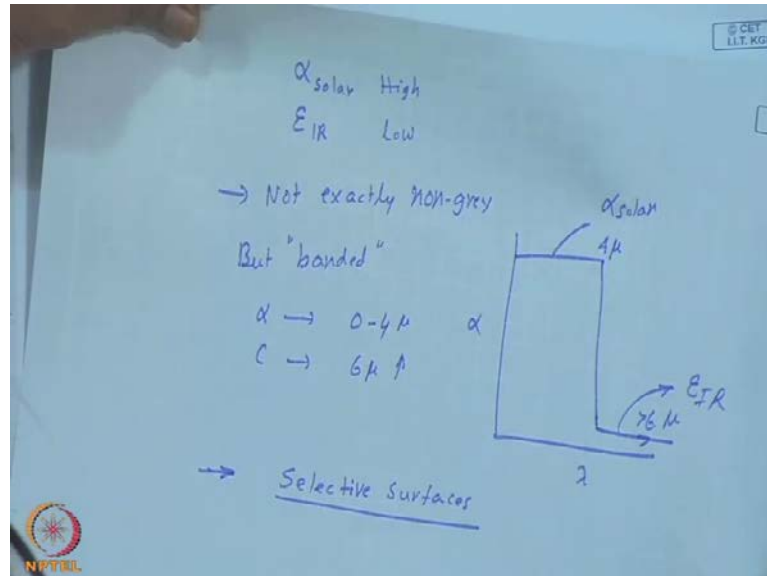 © CET
I.I.T. KG
α solar High
ε IR Low
→ Not exactly non-grey
But "banded"
α → 0-4 μ
ε → 6μ ↑
α solar
4μ
α
ε IR
>6 μ
λ
→ Selective Surfaces
NPTEL